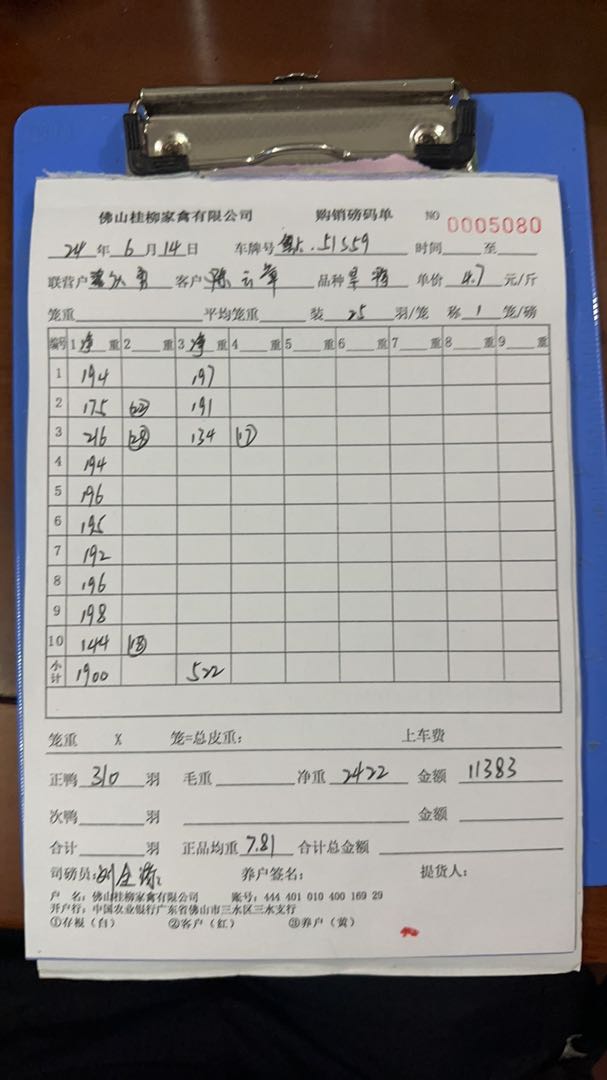 佛山桂柳家禽有限公司 购销磅码单 NO 0005080
24 年 6 月 14 日 车牌号 .51559 时间 至
联营户 客户 陈 品种 单价 4.7 元/斤
笼重 平均笼重 装 25 羽/笼 称 1 笼/磅
编号 1 净 重 2 重 3 净 重 4 重 5 重 6 重 7 重 8 重 9 重
1 194 197
2 175 (22) 191
3 216 (28) 134 (17)
4 194
5 196
6 195
7 192
8 196
9 198
10 144 (18)
小计 1900 522
笼重 X 笼=总皮重: 上车费
正鸭 310 羽 毛重 净重 2422 金额 11383
次鸭 羽 金额
合计 羽 正品均重 7.81 合计总金额
司磅员: 养户签名: 提货人:
户 名: 佛山桂柳家禽有限公司 账号: 444 401 010 400 169 29
开户行: 中国农业银行广东省佛山市三水区三水支行
①存根(白) ②客户(红) ③养户(黄)